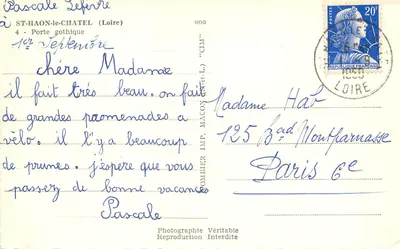 Pascale Lefèvre
à ST-HAON-le-CHATEL (Loire)
4 - Porte gothique
1er septembre
chère Madame
il fait très beau. on fait
de grandes promenades a
vèlo. il l'y a beaucoup
de prunes. j'espère que vous
passez de bonne vacances
Pascale
Photographie Véritable
Reproduction Interdite
IMP. MACON
"CIM"
20F
LOIRE
Madame Hab
125 Bard Montparnasse
Paris 6e